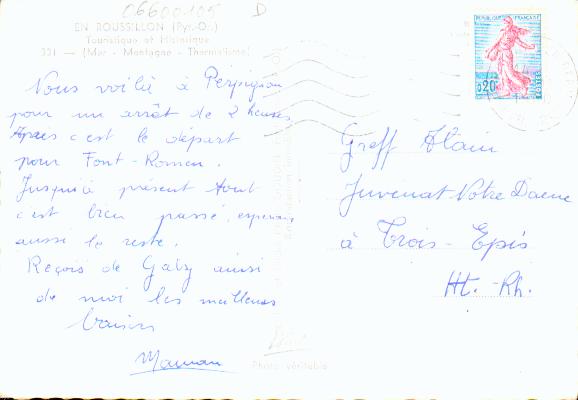 06600105 D
EN ROUSSILLON (Pyr.-Or.)
Touristique et Historique
331 — (Mer - Montagne - Thermalisme)
REPUBLIQUE FRANÇAISE
0,20
POSTES
Nous voilà à Perpignan
pour un arrêt de 2 heures
Après c'est le départ
pour Font-Romeu.
Jusqu'à présent tout
c'est bien passé, espérons
aussi le reste.
Reçois de Gaby ainsi
de moi les meilleurs
baisers
Maman
Greff Alain
Juvenat Notre Dame
à Trois-Epis
Ht.-Rh.
Photo véritable